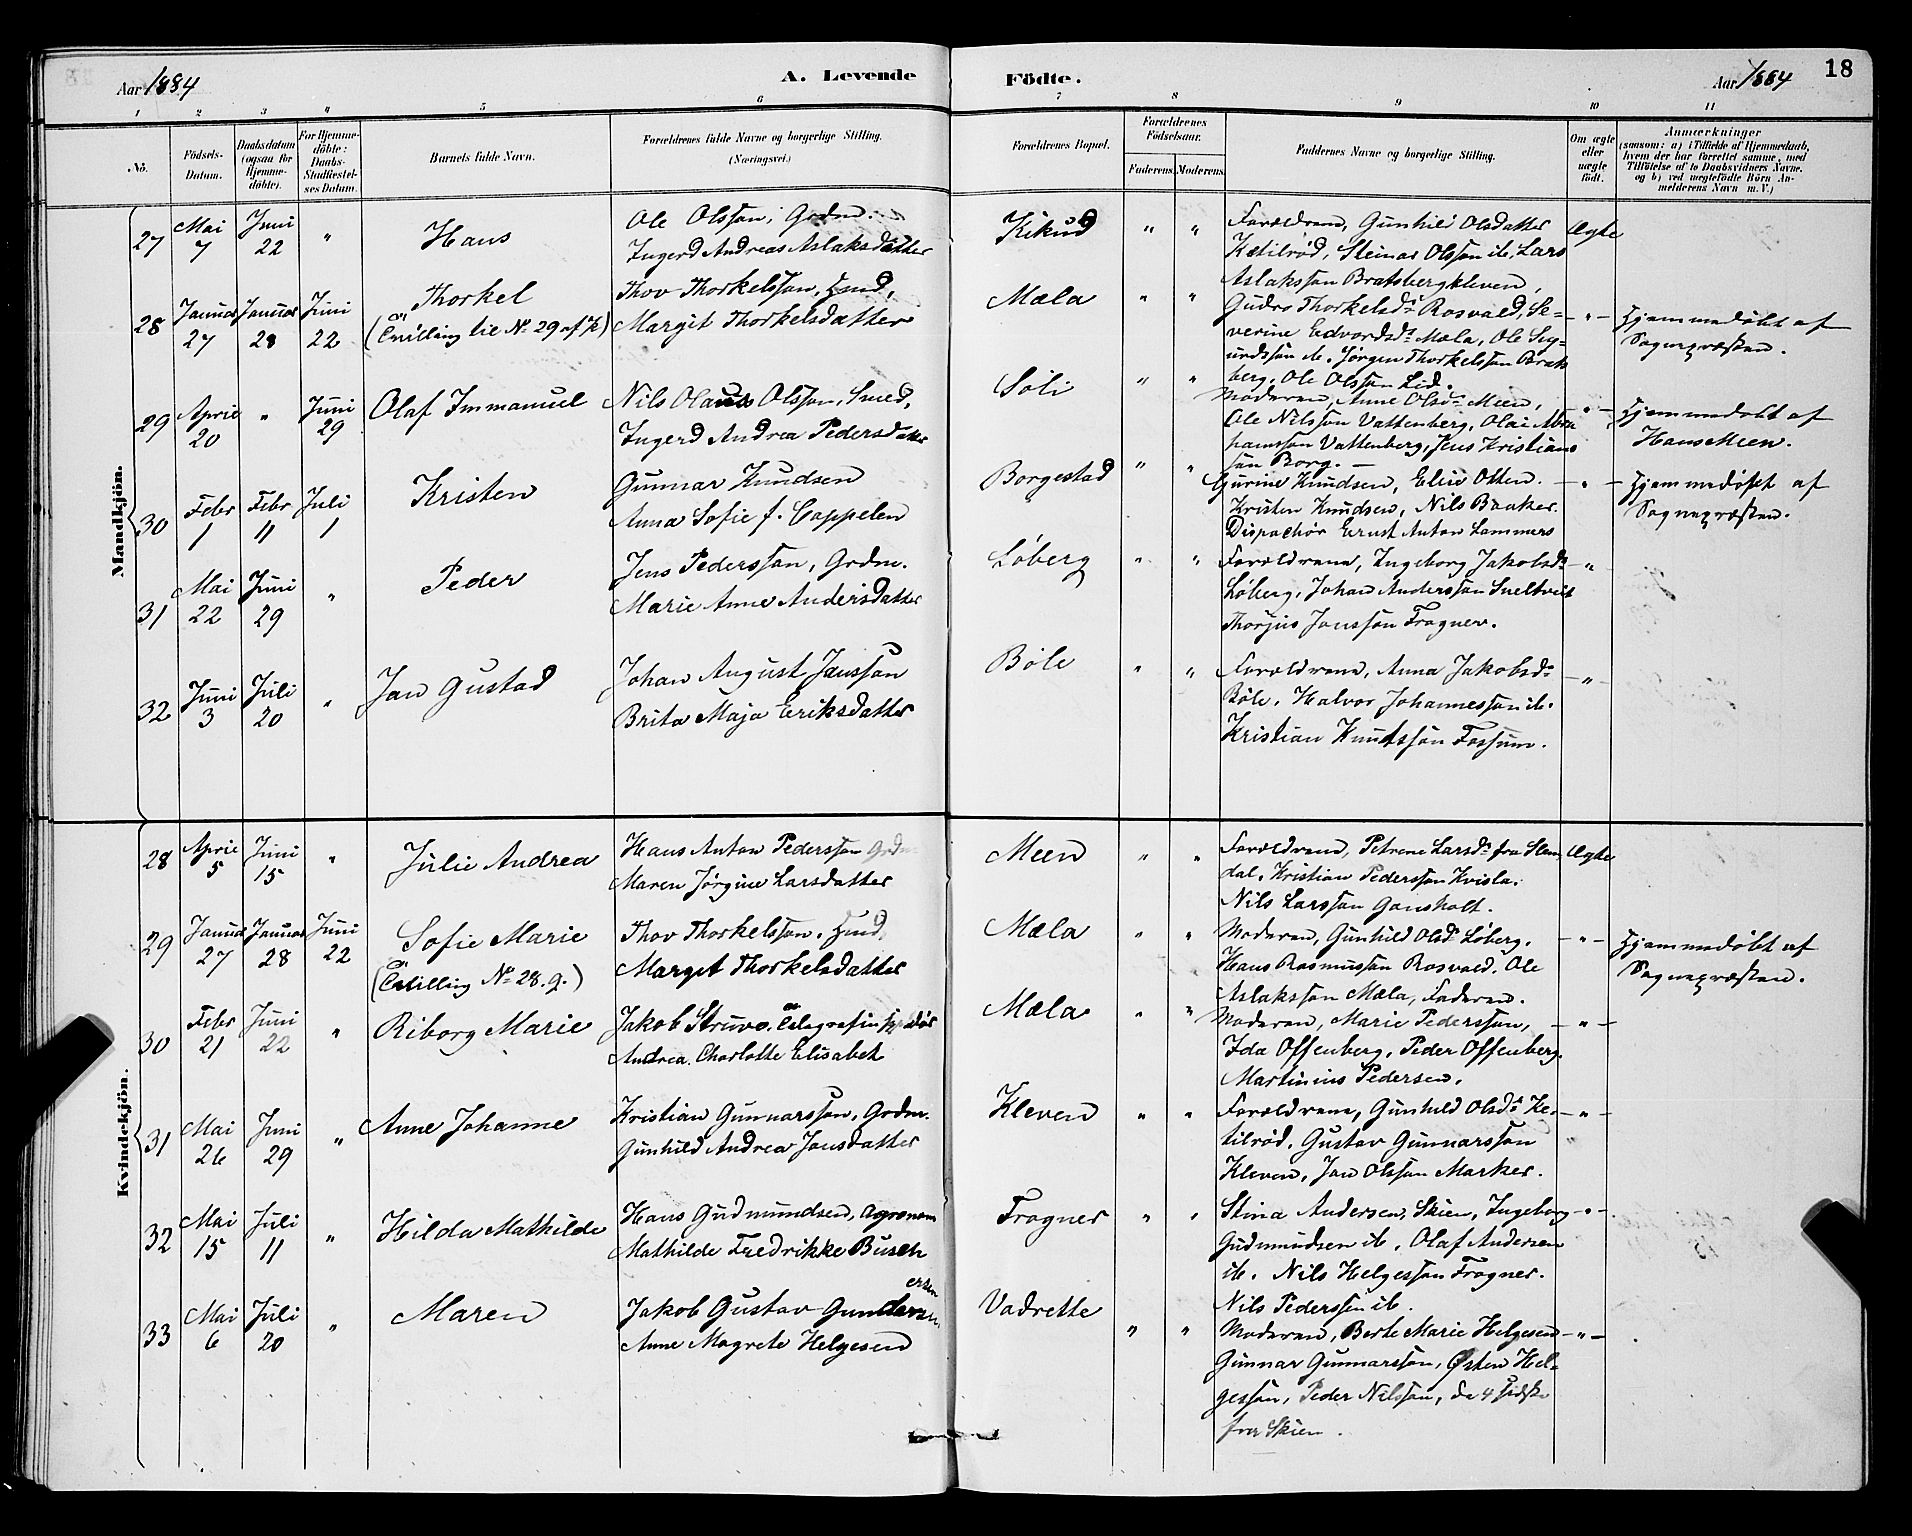 Aar 1884
A. Levende Födte.
Aar 1884
18
1 2 3 4 5 6 7 8 9 10 11
No.
Födsels-Datum.
Daabsdatum (ogsaa for Hjemme-döbte).
For Hjemme-döbte: Daabs-Stadfæstel-ses Datum.
Barnets fulde Navn.
Forældrenes fulde Navne og borgerlige Stilling.
(Næringsvei.)
Forældrenes Bopæl.
Forældrenes Födselsaar.
Faderens. Moderens.
Faddernes Navne og borgerlige Stilling.
Om ægte eller uægte födt.
Anmærkninger
(saasom: a) i Tilfælde af Hjemmedaab,
hvem der har forrettet samme, med
Tilföielse af to Daabsvidners Navne.
og b) ved uægtefödte Börn An-
melderens Navn m. V.)
Mandkjön.
27 Mai 7 Juni 22 " Hans
Ole Olsson, Grdm.
Ingerd Andreas Aslaksdatter
Kikud " "
Forældrene, Gunhild Olsdatter
Ketilrød, Steinar Olsson ib., Lars
Aslaksson Bratsbergkleven,
Ægte
28 Januar 27 Januar 28 Juni 22 Thorkel
(Tvilling til No. 29 af K)
Thov Thorkelsson, Hmd,
Margit Thorkelsdatter
Mæla " "
Gudro Thorkelsd. Rosvald, Se-
verine Edvardsd. Mæla, Ole Sig-
urdsson ib. Jørgen Thorkelsson Brats
berg, Ole Olsson Lid.
- " -
Hjemmedøbt af
Sognepræsten.
29 April 20 " Juni 29 Olaf Immanuel
Nils Olaus Olsson, Smed,
Ingerd Andrea Pedersdatter
Søli " "
Moderen, Anne Olsd. Meen,
Ole Nilsson Vattenberg, Olai Abra
hamsson Vattenberg, Jens Kristians
søn Borg. -
- " -
Hjemmedøbt af
Hans Meen.
30 Febr 1 Febr 11 Juli 1 Kristen
Gunnar Knudsen
Anna Sofie f. Cappelen
Borgestad " "
Gurine Knudsen, Elise Otten.
Kristen Knudsen, Nils Baaker.
Dispachør Ernst Anton Lammers
- " -
Hjemmedøbt af
Sognepræsten.
31 Mai 22 Juni 29 " Peder
Jens Pedersson, Grdm.
Marie Anne Andersdatter
Løberg " "
Forældrene, Ingeborg Jakobsd.
Løberg, Johan Andersson Sneltvedt
Thorjus Jonsson Frogner.
- " -
32 Juni 3 Juli 20 " Jan Gustad
Johan August Jansson
Brita Maja Eriksdatter
Bøle " "
Forældrene, Anna Jakobsd.
Bøle, Halvor Johannesson ib.
Kristian Knutsson Fossum.
- " -
Kvindekjön.
28 April 5 Juni 15 " Julie Andrea
Hans Anton Pedersson Grdm
Maren Jørgine Larsdatter
Meen " "
Forældrene, Petrene Larsd. fra Slem
dal, Kristian Pedersson Kvisla,
Nils Larsson Gansholt.
Ægte
29 Januar 27 Januar 28 Juni 22 Sofie Marie
(Tvilling No. 28. g.)
Thov Thorkelsson, Hmd,
Margit Thorkelsdatter
Mæla " "
Moderen, Gunhild Olsd. Løberg,
Hans Rasmusson Rosvald, Ole
Aslaksson Mæla, Faderen.
- " -
Hjemmedøbt af
Sognepræsten.
30 Febr 21 Juni 22 " Riborg Marie
Jakob Struve, Telegrafinspektør
Andrea Charlotte Elisabet
Mæla " "
Moderen, Marie Pedersson,
Ida Offenberg, Peder Offenberg.
Martinius Pedersen.
- " -
31 Mai 26 Juni 29 " Anne Johanne
Kristian Gunnarsson, Grdm.
Gunhild Andrea Jonsdatter
Kleven " "
Forældrene, Gunhild Olsd. Ke-
tilrød, Gustav Gunnarsson
Kleven, Jan Olsson Marker.
- " -
32 Mai 15 Juli 11 " Hilda Mathilde
Hans Gudmundsen, Agronom
Mathilde Fredrikke Busch
Frogner " "
Stina Andersen, Skien, Ingeborg
Gudmundsen ib. Olaf Andersen
ib. Nils Helgesson Frogner.
Nils Pedersson ib.
- " -
33 Mai 6 Juli 20 " Maren
Jakob Gustav Gundersen
Anne Magrete Helgesen
Vadrette " "
Moderen, Berte Marie Helgesen
Gunnar Gunnarsson, Østen Hel-
gesson, Peder Nilsson, de 4 sidste
fra Skien.
- " -